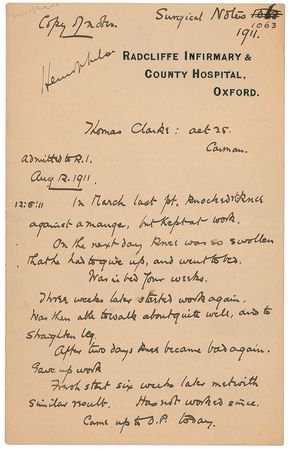 Copy of notes.
Surgical Notes
1063
1911.
RADCLIFFE INFIRMARY &
COUNTY HOSPITAL,
OXFORD.
Thomas Clarke: aet 25.
Carman.
Admitted to R.I.
Aug 12. 1911.
12:8:11 In March last pt. knocked knee
against a manger, but kept at work.
On the next day knee was so swollen
that he had to give up, and went to bed.
Was in bed four weeks.
Three weeks later started work again.
Was then able to walk about quite well, and to
straighten leg.
After two days knee became bad again.
Gave up work
Fresh start six weeks later met with
similar result. Has not worked since.
Came up to O.P. today.